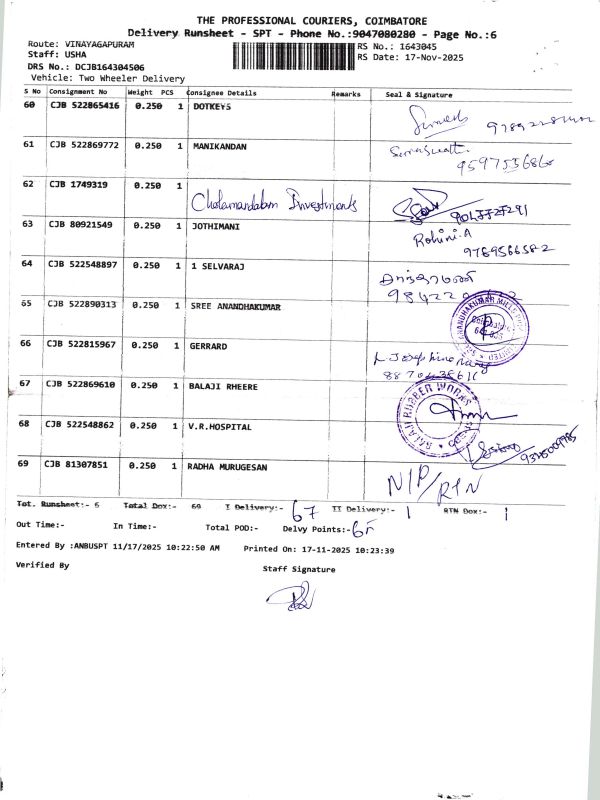 THE PROFESSIONAL COURIERS, COIMBATORE
Delivery Runsheet - SPT - Phone No.:9047080280 - Page No.:6
Route: VINAYAGAPURAM
Staff: USHA
DRS No.: DCJB164304506
Vehicle: Two Wheeler Delivery
RS No.: 1643045
RS Date: 17-Nov-2025
S No Consignment No Weight PCS Consignee Details Remarks Seal & Signature
60 CJB 522865416 0.250 1 DOTKEYS
61 CJB 522869772 0.250 1 MANIKANDAN
62 CJB 1749319 0.250 1 Cholamandalam Investments
63 CJB 80921549 0.250 1 JOTHIMANI Rohini.A
9769566582
64 CJB 522548897 0.250 1 1 SELVARAJ
65 CJB 522890313 0.250 1 SREE ANANDHAKUMAR
66 CJB 522815967 0.250 1 GERRARD
67 CJB 522869610 0.250 1 BALAJI RHEERE BALAJI RUBBER WORKS
68 CJB 522548862 0.250 1 V.R.HOSPITAL
69 CJB 81307851 0.250 1 RADHA MURUGESAN N/P/RTN
Tot. Runsheet:- 6 Total Dox:- 69 I Delivery:- 67 II Delivery:- 1 RTN Dox:- 1
Out Time:- In Time:- Total POD:- Delvy Points:-
Entered By :ANBUSPT 11/17/2025 10:22:50 AM Printed On: 17-11-2025 10:23:39
Verified By Staff Signature